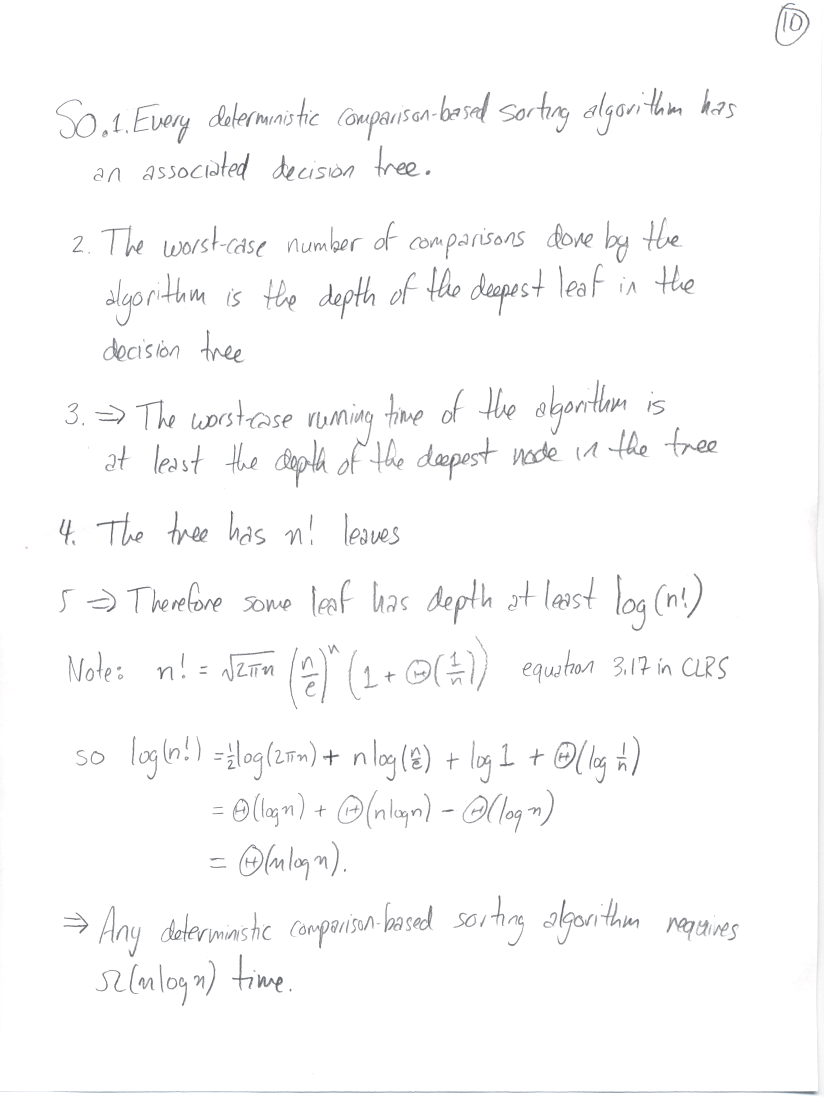 10
So. 1. Every deterministic comparison-based sorting algorithm has
an associated decision tree.
2. The worst-case number of comparisons done by the
algorithm is the depth of the deepest leaf in the
decision tree
3. ⇒ The worst-case running time of the algorithm is
at least the depth of the deepest node in the tree
4. The tree has n! leaves
5 ⇒ Therefore some leaf has depth at least log(n!)
Note: n! = √2πn (n/e)^n (1 + Θ(1/n)) equation 3.17 in CLRS
so log(n!) = ½log(2πn) + n log(n/e) + log 1 + Θ(log 1/n)
= Θ(log n) + Θ(n log n) - Θ(log n)
= Θ(n log n).
⇒ Any deterministic comparison-based sorting algorithm requires
Ω(n log n) time.